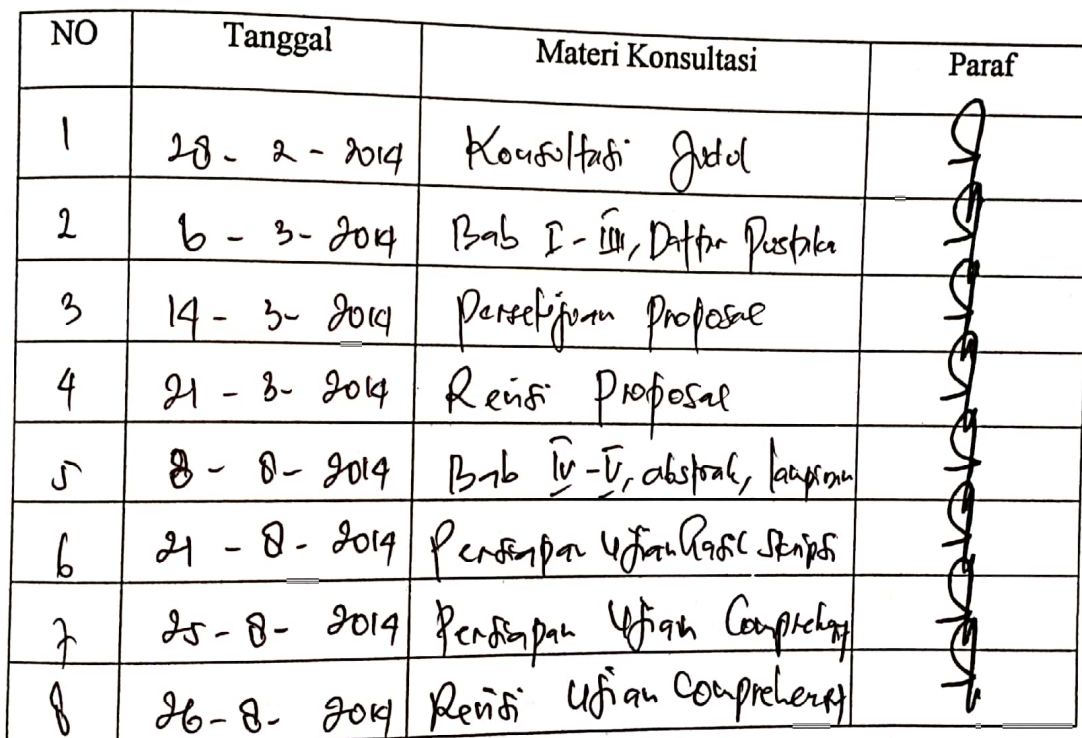 NO Tanggal Materi Konsultasi Paraf
1 28 - 2 - 2014 Konsultasi Judul
2 6 - 3 - 2014 Bab I - III, Daftar Pustaka
3 14 - 3 - 2014 Persetujuan Proposal
4 21 - 3 - 2014 Revisi Proposal
5 8 - 8 - 2014 Bab IV - V, abstrak, lampiran
6 21 - 8 - 2014 Persiapan Ujian Hasil Skripsi
7 25 - 8 - 2014 Persiapan Ujian
8 26 - 8 - 2014 Revisi Ujian